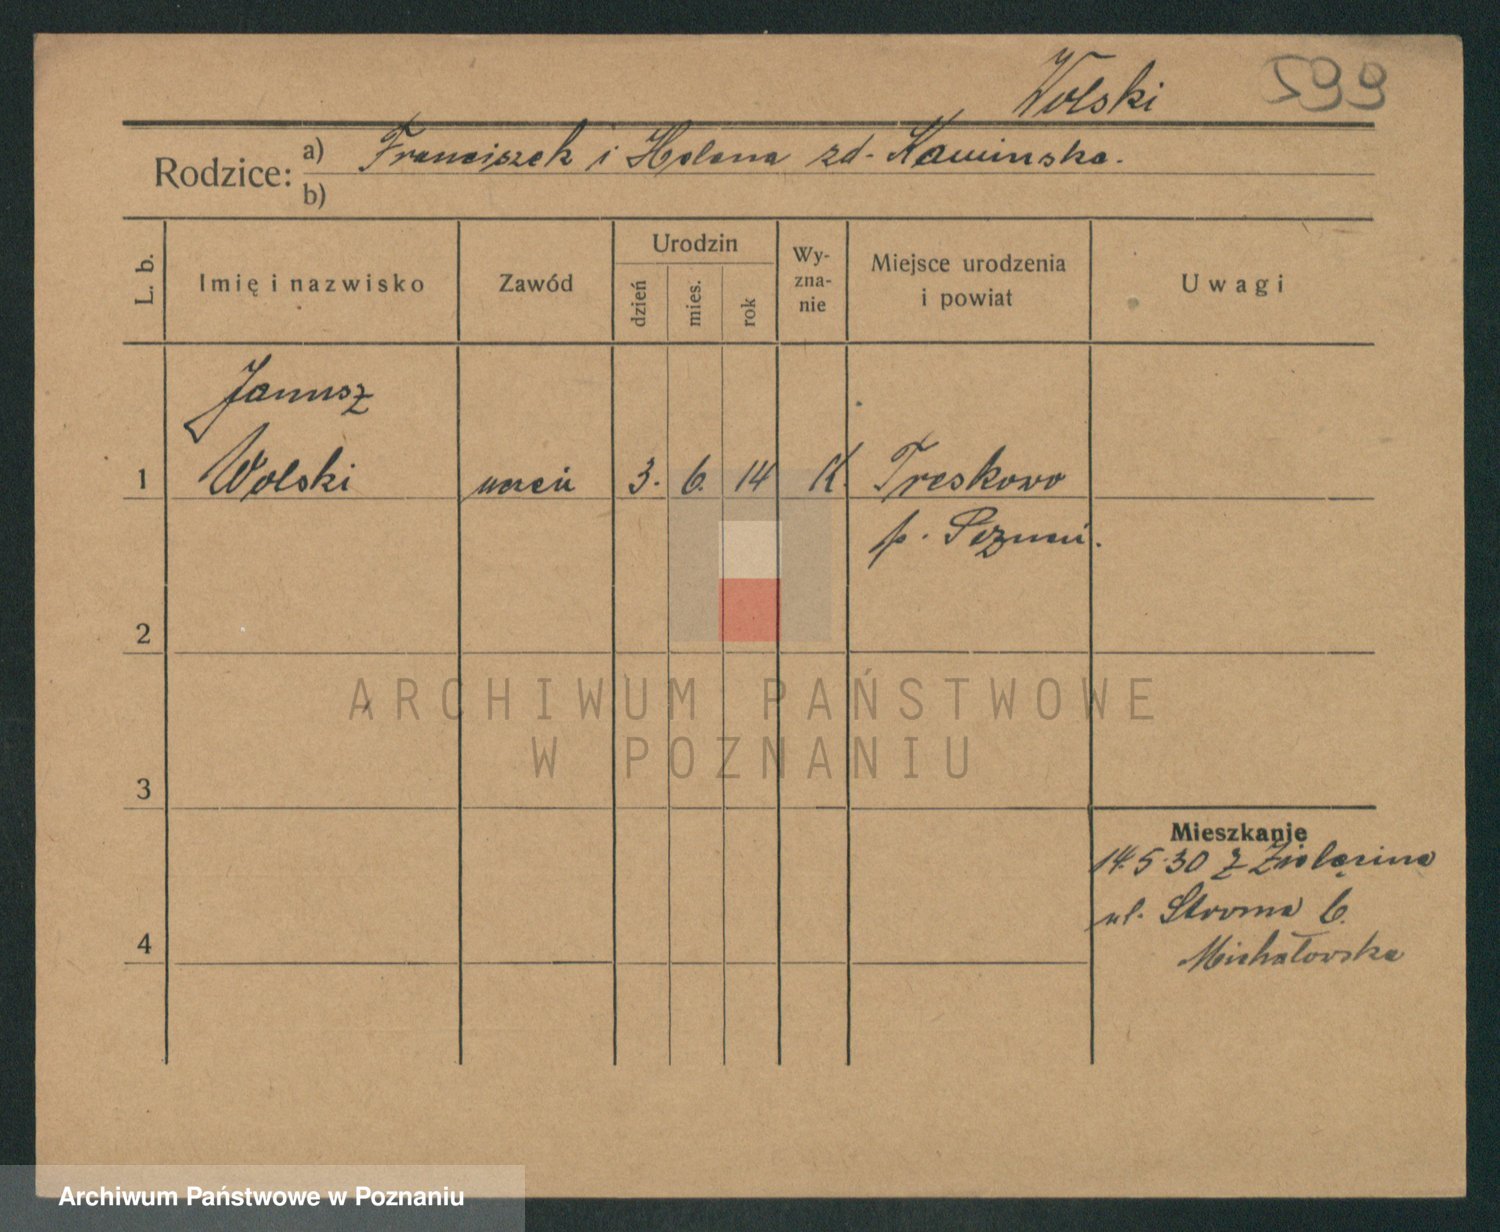 Wolski 599
Rodzice: a) Franciszek i Helena zd. Kamińska.
b)
L. b. Imię i nazwisko Zawód Urodzin dzień mies. rok Wy-zna-nie Miejsce urodzenia i powiat Uwagi
Janusz
1 Wolski uczeń 3. 6. 14 K. Treskowo
p. Poznań.
2
ARCHIWUM PAŃSTWOWE
W POZNANIU
3
Mieszkanie
14.5.30 z
ul. Stroma 6.
4 Michałowska
Archiwum Państwowe w Poznaniu